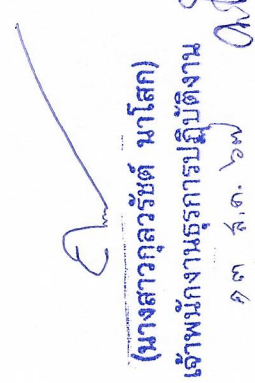 (นางสาวกุลวรัชต์ นาโสก)
เจ้าพนักงานธุรการปฏิบัติงาน
๑๓ ส.ค. ๖๗